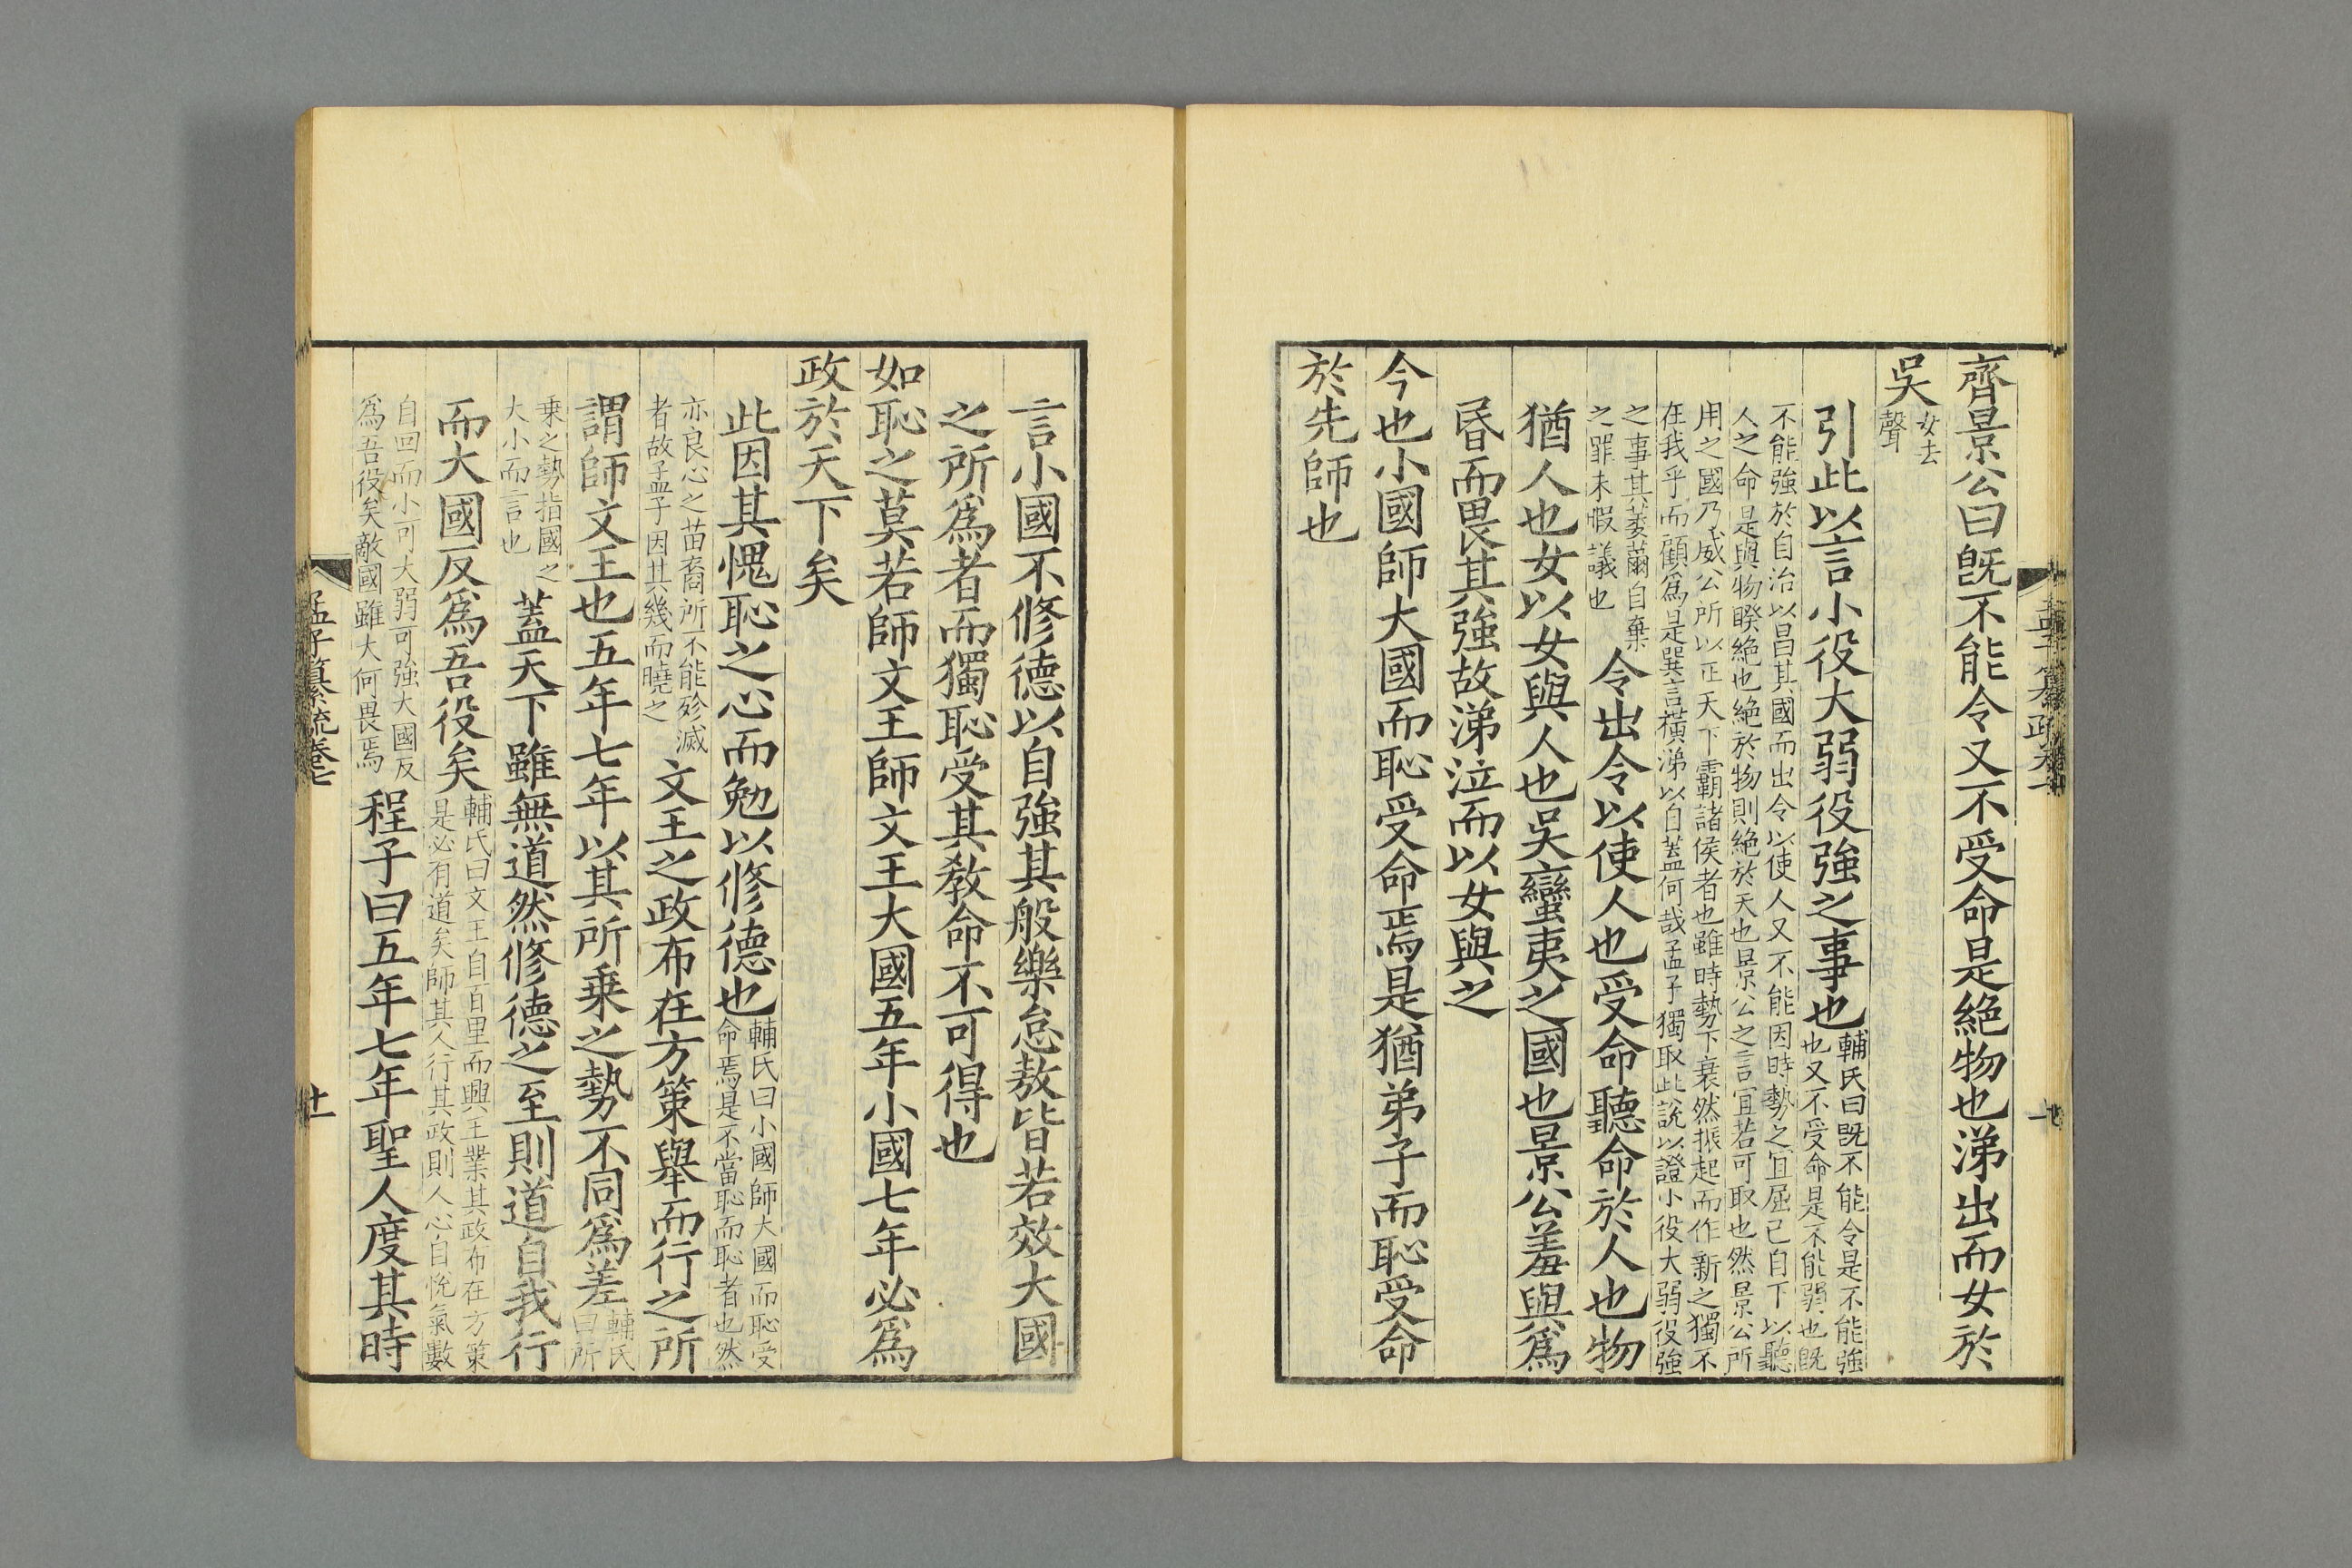 齊景公曰旣不能令又不受命是絕物也涕出而女於
吳
女去
聲
引此以言小役大弱役強之事也
輔氏曰旣不能令是不能強
也又不受命是不能弱也旣
不能強於自治以昌其國而出令以使人又不能因時勢之宜屈已自下以聽
人之命是與物睽絕也絕於物則絕於天也景公之言宜若可取也然景公所
用之國乃威公所以正天下霸諸侯者也雖時勢下衰然振起而作新之獨不
在我乎而顧爲是巽言橫涕以自蓋何哉孟子獨取此說以證小役大弱役強
之事其萎薾自棄
之罪未暇議也
令出令以使人也受命聽命於人也物
猶人也女以女與人也吳蠻夷之國也景公羞與爲
昏而畏其強故涕泣而以女與之
今也小國師大國而恥受命焉是猶弟子而恥受命
於先師也
言小國不修德以自強其般樂怠敖皆若效大國
之所爲者而獨恥受其敎命不可得也
如恥之莫若師文王師文王大國五年小國七年必爲
政於天下矣
此因其愧恥之心而勉以修德也
輔氏曰小國師大國而恥受
命焉是不當恥而恥者也然
亦良心之苗裔所不能殄滅
者故孟子因其幾而曉之
文王之政布在方策舉而行之所
謂師文王也五年七年以其所乗之勢不同爲差
輔氏
曰所
乗之勢指國之
大小而言也
蓋天下雖無道然修德之至則道自我行
而大國反爲吾役矣
輔氏曰文王自百里而興王業其政布在方策
是必有道矣師其人行其政則人心自悅氣數
自回而小可大弱可強大國反
爲吾役矣敵國雖大何畏焉
程子曰五年七年聖人度其時
孟子纂疏卷七
十一